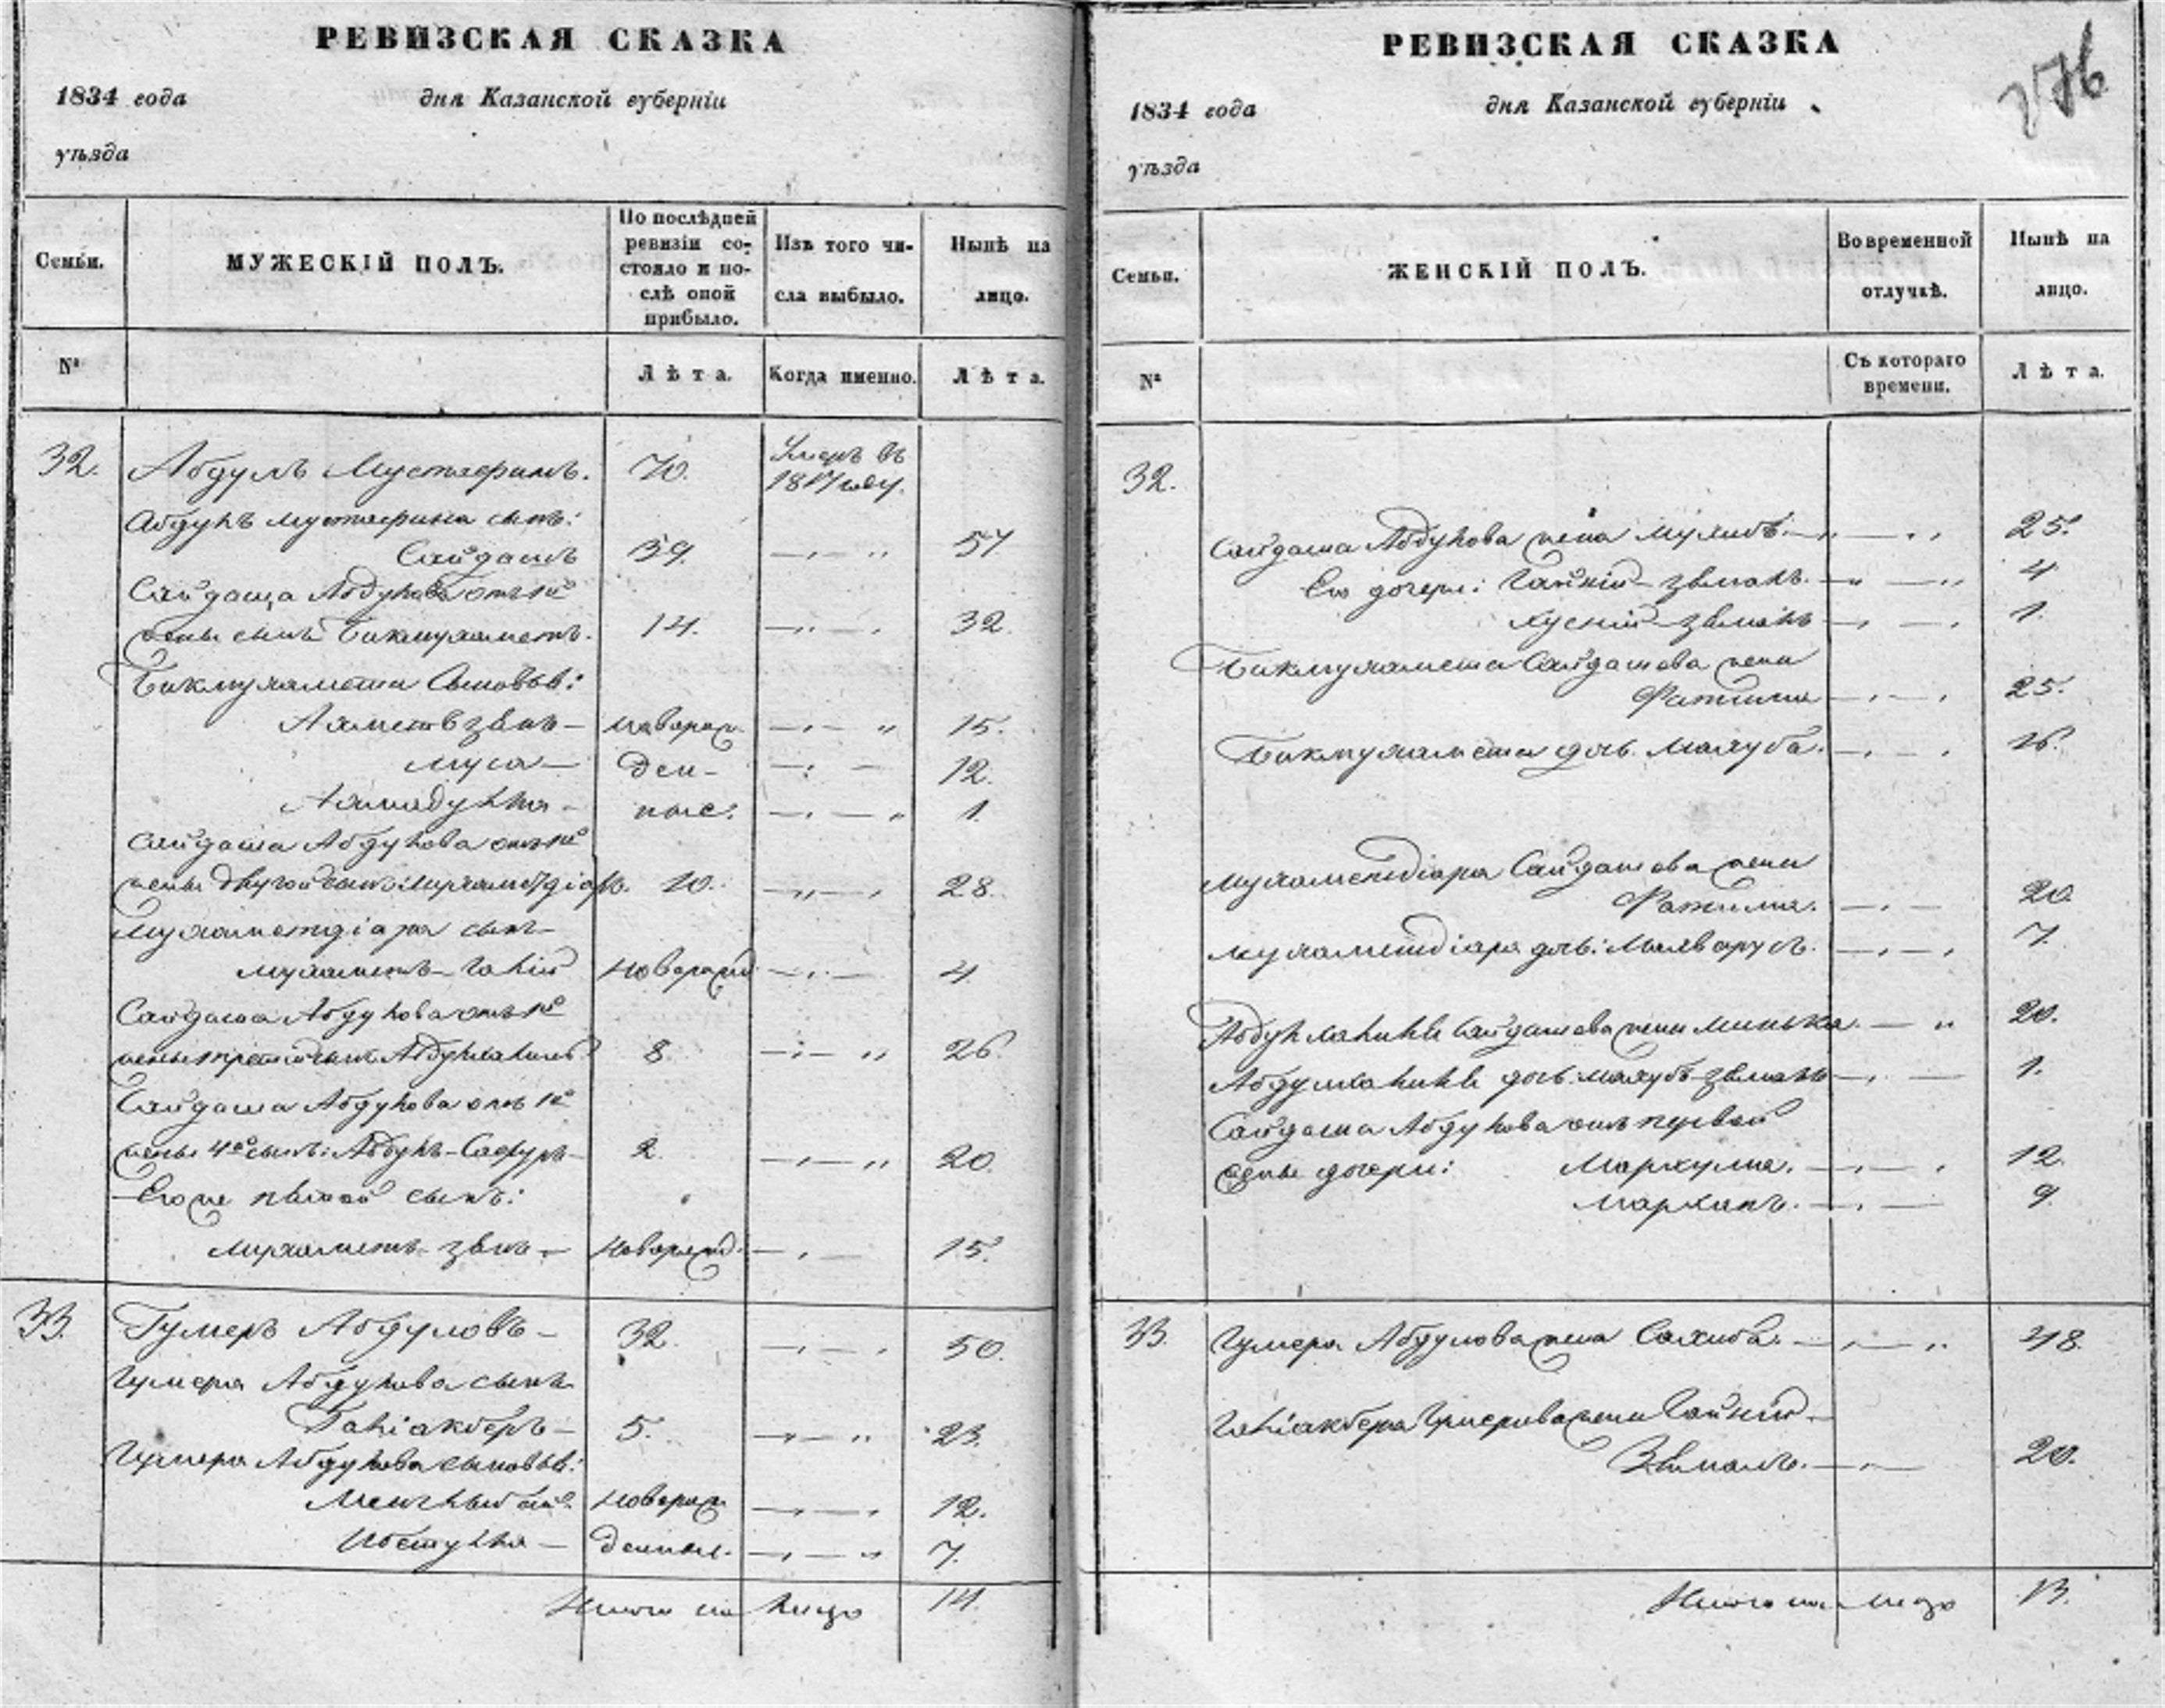 РЕВИЗСКАЯ СКАЗКА
1834 года дня Казанской губерніи
уѣзда
Семьи.
МУЖЕСКІЙ ПОЛЪ.
По послѣдней
ревизіи со-
стояло и по-
слѣ оной
прибыло.
Изъ того чи-
сла выбыло.
Нынѣ на
лицо.
№
Лѣта.
Когда именно.
Лѣта.
32. Абдулъ Мустафинъ. 70. Умеръ въ
1817 году.
Абдулъ Мустафина сынъ:
Сайдашъ 39. 57
Сайдаша Абдулова отъ 1й
жены сынъ Бикмухаметъ. 14. 32.
Бикмухамета Сыновья:
новорож 15.
Муса ден- 12.
после. 1.
Сайдаша Абдулова отъ 1й
жены другой сынъ: Мухаметдіяръ. 10. 28.
Мухаметдіяра сынъ
Мухаметъ-Галій новорожд 4.
Сайдаша Абдулова отъ 1й
жены третій сынъ 8. 26.
Сайдаша Абдулова отъ 1й
жены 4й сынъ: Абдулъ-Сафуръ 2. 20.
Его же пятой сынъ:
Мухаметъ-зянъ новорожд. 15.
33. Гумеръ Абдуловъ 32. 50.
Гумера Абдулова сынъ
Галіакберъ 5. 23.
Гумера Абдулова сыновья:
новорож 12.
7.
Итого на лицо 14.
РЕВИЗСКАЯ СКАЗКА
276
1834 года дня Казанской губерніи
уѣзда
Семьи.
ЖЕНСКІЙ ПОЛЪ.
Во временной
отлучкѣ.
Нынѣ на
лицо.
№
Съ котораго
времени.
Лѣта.
32.
Сайдаша Абдулова жена 25.
Его дочери: Гайній-зямалъ. 4
Хусній-зямалъ 1.
Бикмухамета Сайдашова жена
Фатима 25.
Бикмухамета дочь Махуба. 16.
Мухаметдіара Сайдашова жена
Фатима. 20.
Мухаметдіара дочь: 7.
Сайдашева жена 20.
дочь: Махубъ-зямалъ 1.
Сайдаша Абдулова отъ первой
жены дочери: 12.
9.
33. Гумера Абдулова жена Сахиба. 48.
Галіакбера Гумерова жена Гайній-
Зямалъ. 20.
Итого на лицо 13.